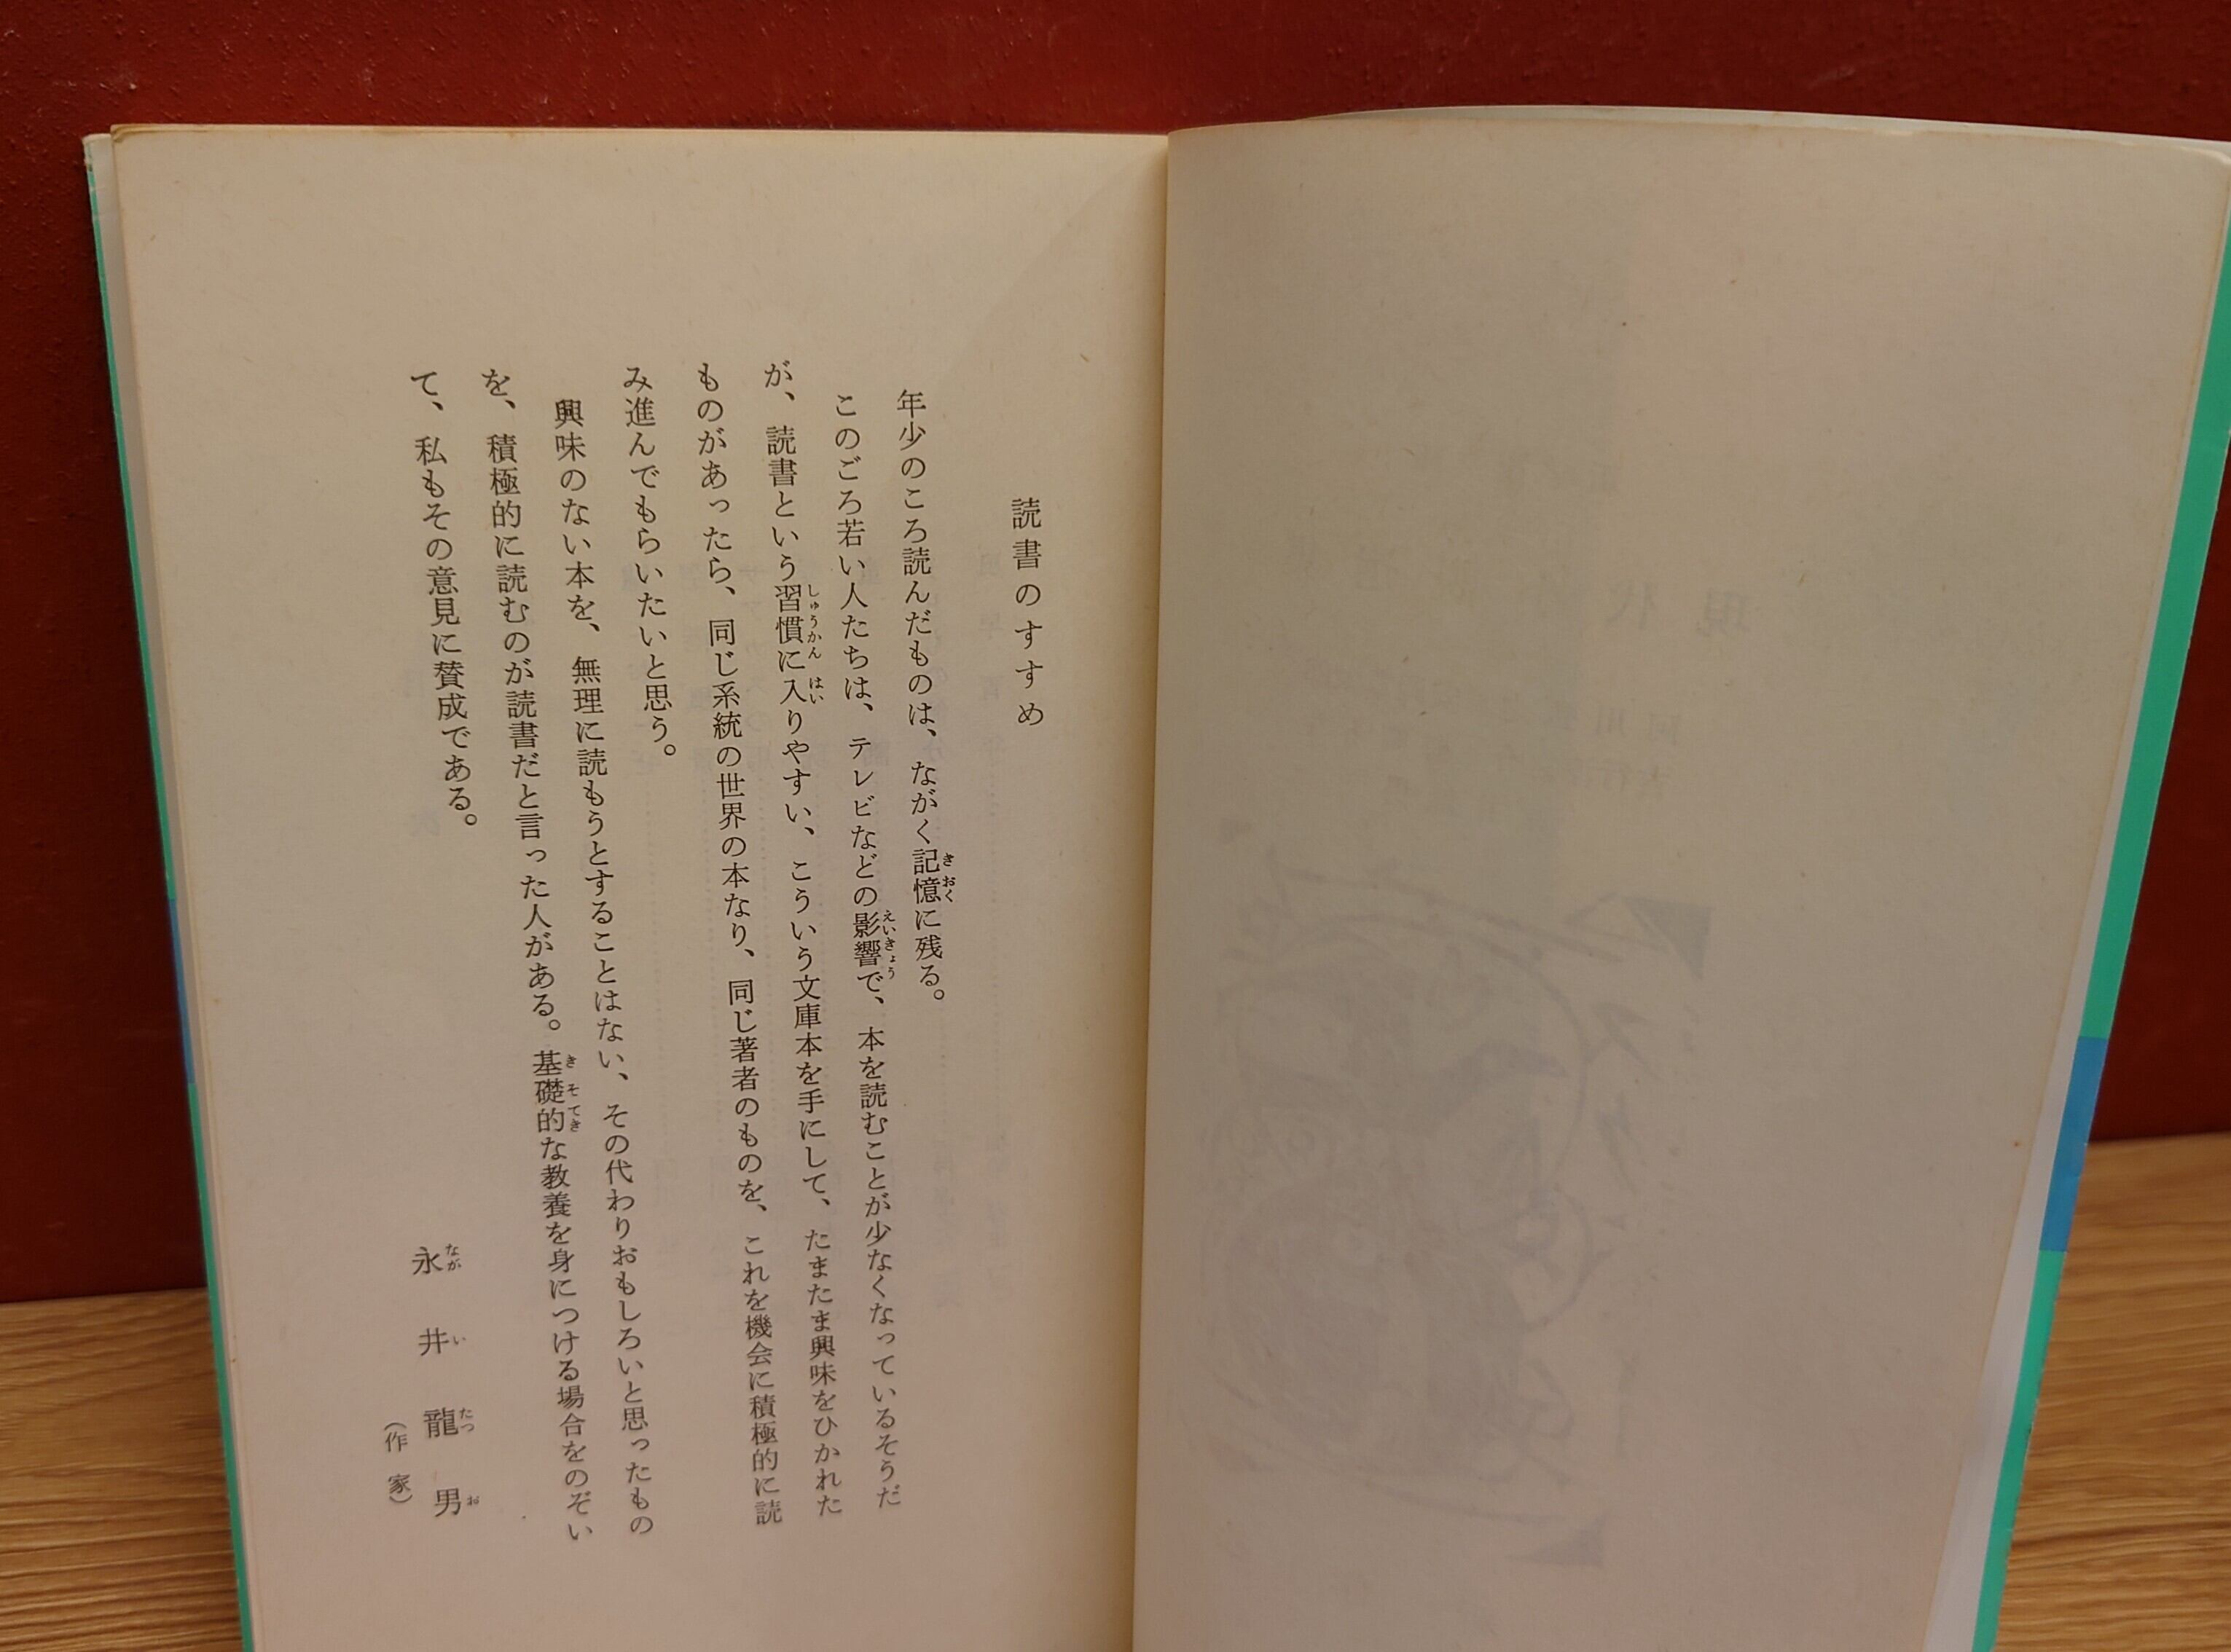 読書のすすめ
年少のころ読んだものは、ながく記憶に残る。
このごろ若い人たちは、テレビなどの影響で、本を読むことが少なくなっているそうだ
が、読書という習慣に入りやすい、こういう文庫本を手にして、たまたま興味をひかれた
ものがあったら、同じ系統の世界の本なり、同じ著者のものを、これを機会に積極的に読
み進んでもらいたいと思う。
興味のない本を、無理に読もうとすることはない、その代わりおもしろいと思ったもの
を、積極的に読むのが読書だと言った人がある。基礎的な教養を身につける場合をのぞい
て、私もその意見に賛成である。
永井龍男
（作家）